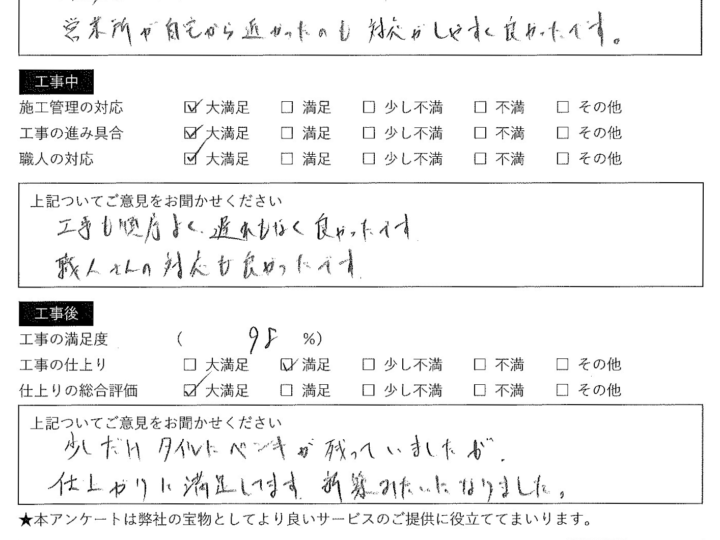 営業所が自宅から近かったのも 対応がしやすく良かったです。
工事中
施工管理の対応 ☑ 大満足 □ 満足 □ 少し不満 □ 不満 □ その他
工事の進み具合 ☑ 大満足 □ 満足 □ 少し不満 □ 不満 □ その他
職人の対応 ☑ 大満足 □ 満足 □ 少し不満 □ 不満 □ その他
上記ついてご意見をお聞かせください
工事も順序よく、遅れもなく良かったです
職人さんの対応も良かったです
工事後
工事の満足度 ( 98 %)
工事の仕上り □ 大満足 ☑ 満足 □ 少し不満 □ 不満 □ その他
仕上りの総合評価 ☑ 大満足 □ 満足 □ 少し不満 □ 不満 □ その他
上記ついてご意見をお聞かせください
少しだけ タイルに ペンキが 残っていましたが、
仕上がりに満足してます 新築みたいになりました。
★本アンケートは弊社の宝物としてより良いサービスのご提供に役立ててまいります。